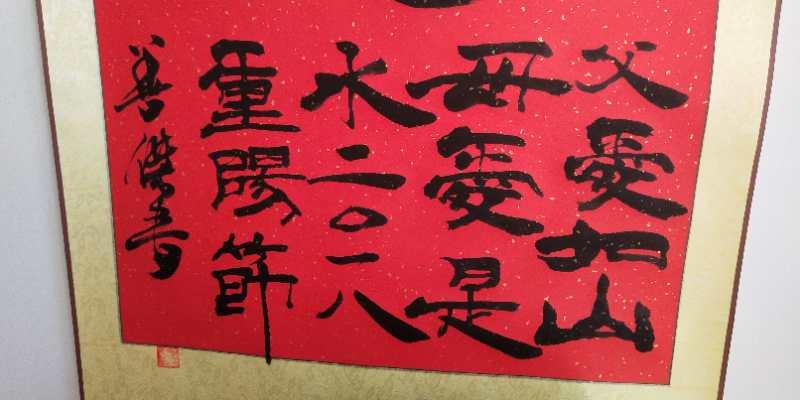 父愛如山
母愛是
水二〇一八
重陽節
善傑書